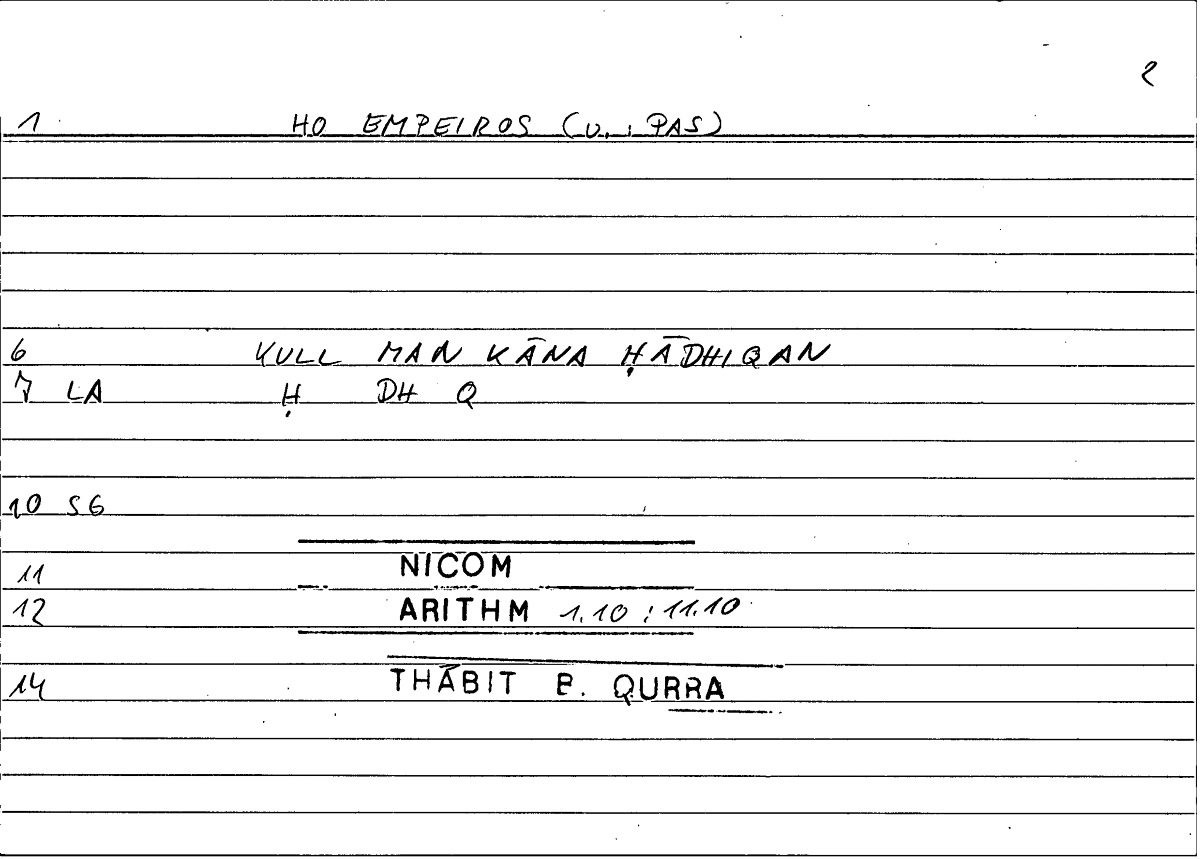 2
1 HO EMPEIROS (U. : PAS)
6 KULL MAN KĀNA ḤĀDHIQAN
7 LA Ḥ DH Q
10 SG
11 NICOM
12 ARITHM 1.10 : 11.10
14 THĀBIT B. QURRA